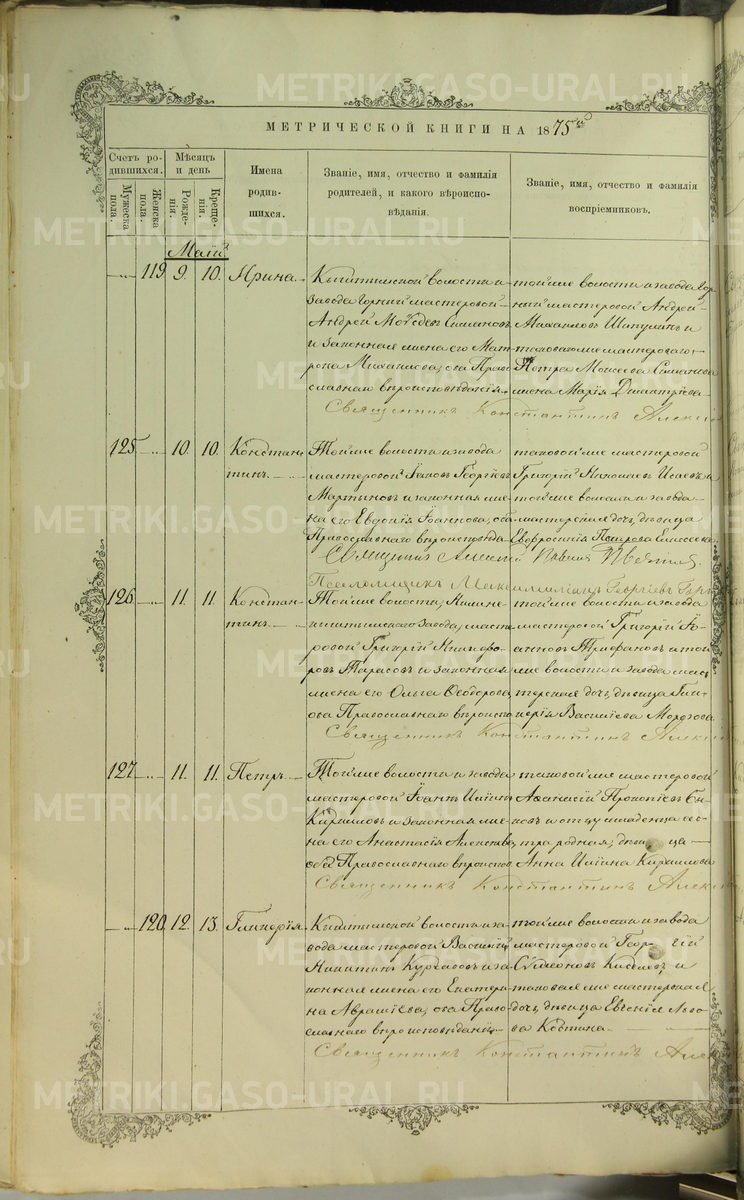 МЕТРИЧЕСКОЙ КНИГИ НА 1875й
Счетъ родившихся.
Мужеска пола.
Женска пола.
Мѣсяцъ и день
Рожденія.
Крещенія.
Имена родившихся.
Званіе, имя, отчество и фамилія родителей, и какого вѣроисповѣданія.
Званіе, имя, отчество и фамилія воспріемниковъ.
Маій
119 9. 10. Ирина.
Кыштымской волости и
завода горный мастеровой
Андрей Моѵсеевъ Симановъ
и законная жена его Мат
рона Михаилова, оба Право
славнаго вѣроисповѣданія.
той же волости и завода гор
ный мастеровой Андрей
Михаиловъ Шипулинъ и
таковаго же мастероваго
Петра Моисеева Симанова
жена Марія Димитріева
Священникъ Константинъ
125 10. 10. Констан
тинъ
Той же волости и завода
мастеровой Іаковъ Георгіевъ
Мартыновъ и законная же
на его Евдокія Іоаннова, оба
Православнаго вѣроисповѣда
таковой же мастеровой
Григорій Николаевъ Исаевъ и
той же волости и завода
мастерская дочь, дѣвица
Евфросинія Петрова Елисеева
Священникъ Алексій
Псаломщикъ Максимиліанъ Георгіевъ
126 11. 11. Констан
тинъ
Той же волости, Нижне
кыштымскаго завода, масте
ровой Григорій Никифо
ровъ Тарасовъ и законная
жена его Ольга Ѳеодорова,
оба Православнаго вѣроиспо
той же волости и завода
мастеровой Григорій Іо
анновъ Трифановъ и той
же волости и завода мас
терская дочь, дѣвица Гли
керія Василіева Морозова
Священникъ Константинъ
127 11. 11. Петръ
Той же волости и завода
мастеровой Іоаннъ Иліинъ
Кириловъ и законная же
на его Анастасія Алексѣева,
оба Православнаго вѣроиспов
таковой же мастеровой
Аѳанасій Прокопіевъ
отцу младенца сес
тра родная, дѣвица
Анна Иліина Кирилова
Священникъ Константинъ
120 12. 13. Гликерія
Кыштымской волости и за
вода мастеровой Василій
Никитинъ и за
конная жена его Екатери
на Авраміева, оба Право
славнаго вѣроисповѣданія
той же волости и завода
мастеровой Георгій
Сѵмеоновъ и
таковая же мастерская
дочь, дѣвица Евгенія
Костина
Священникъ Константинъ
METRIKI.GASO-URAL.RU